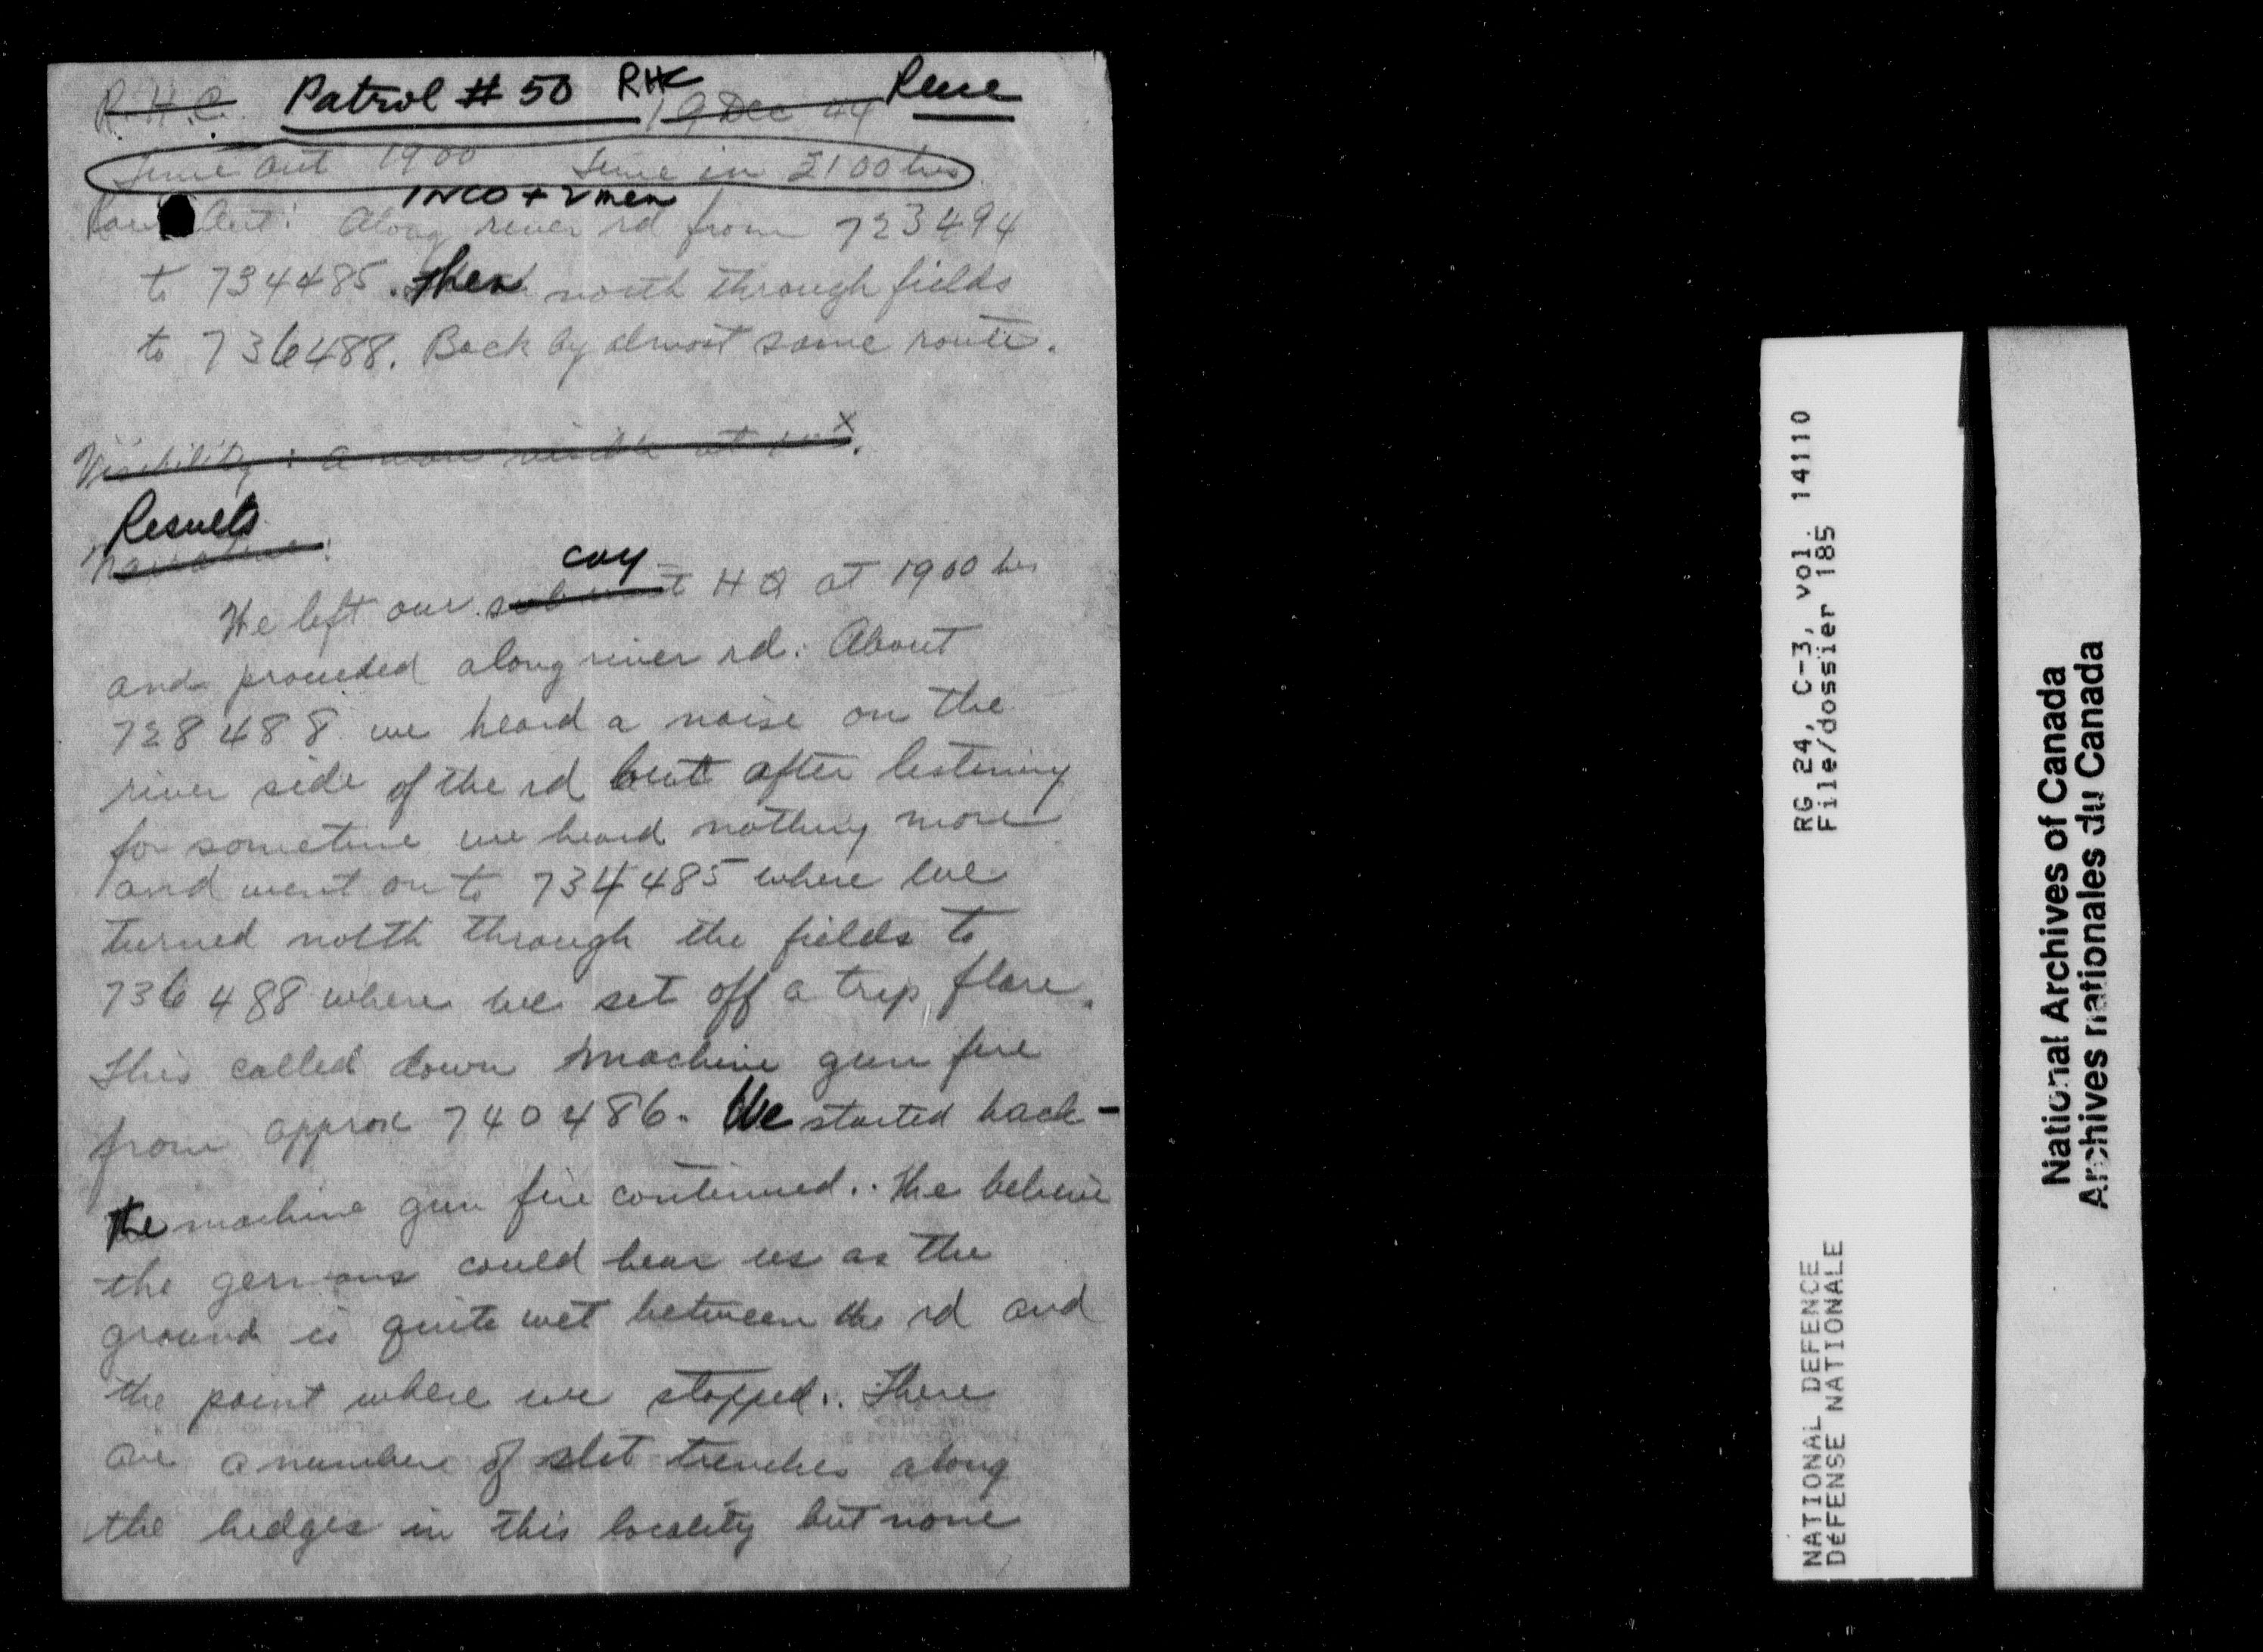 R.H.C. Patrol # 50 RHC 19 Dec 44 Rece
Time out 1900 Time in 2100 hrs
1 NCO + 2 men
Route Out: Along river rd from 723494
to 734485. Then north through fields
to 736488. Back by almost same route.
Visibility: a man visible at x.
Results
Narrative:
coy
We left our subunit HQ at 1900 hrs
and proceeded along river rd. About
728488 we heard a noise on the
river side of the rd but after listening
for sometime we heard nothing more
and went on to 734485 where we
turned north through the fields to
736488 where we set off a trip flare.
This called down machine gun fire
from approx 740486. We started back -
The machine gun fire continued. We believe
the germans could hear us as the
ground is quite wet between the rd and
the point where we stopped. There
are a number of slit trenches along
the hedges in this locality but none
RG 24, C-3, vol. 14110
File/dossier 185
NATIONAL DEFENCE
DéFENSE NATIONALE
National Archives of Canada
Archives nationales du Canada